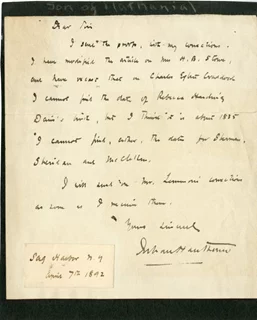 Son of Nathaniel
Dear Sir
I send the proofs, with my corrections.
I have modified the article on Mrs H. B. Stowe,
and have that on Charles Egbert Craddock
I cannot find the date of Rebecca Harding
Davis's birth, but I think it is about 1835
I cannot find, either, the dates for Sherman,
Sheridan and McClellan.
I will send you Mr. corrections
as soon as I receive them.
Yours sincerely
Julian Hawthorne
Sag Harbor N. Y
April 7th 1892